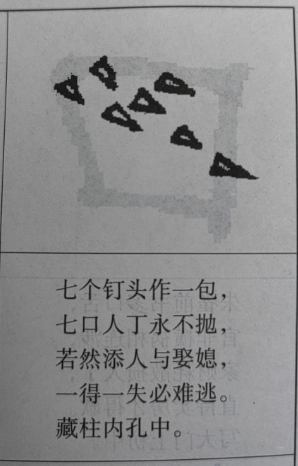 七个钉头作一包，
七口人丁永不抛，
若然添人与娶媳，
一得一失必难逃。
藏柱内孔中。